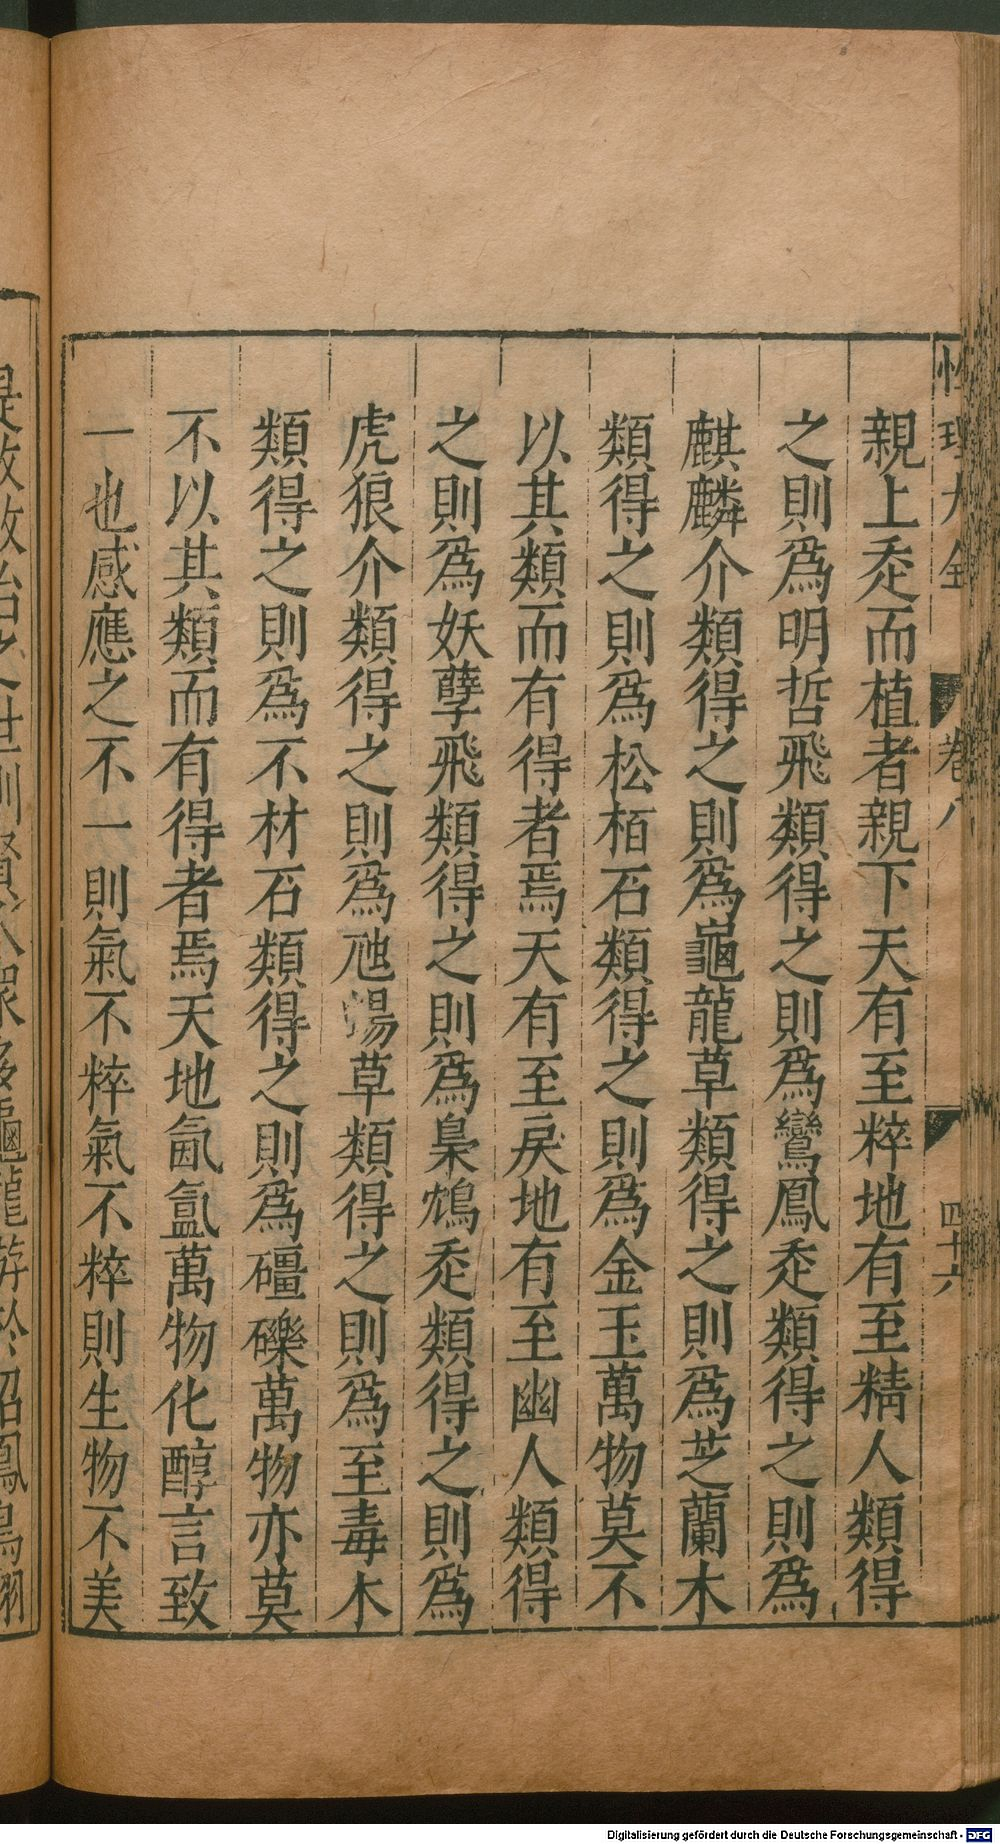 性理大全 卷八 四十六
親上走而植者親下天有至粹地有至精人類得
之則爲明哲飛類得之則爲鸞鳳走類得之則爲
麒麟介類得之則爲龜龍草類得之則爲芝蘭木
類得之則爲松栢石類得之則爲金玉萬物莫不
以其類而有得者焉天有至戾地有至幽人類得
之則爲妖孽飛類得之則爲梟鴆走類得之則爲
虎狼介類得之則爲虺蜴草類得之則爲至毒木
類得之則爲不材石類得之則爲礓礫萬物亦莫
不以其類而有得者焉天地氤氳萬物化醇言致
一也感應之不一則氣不粹氣不粹則生物不美
Digitalisierung gefördert durch die Deutsche Forschungsgemeinschaft - DFG